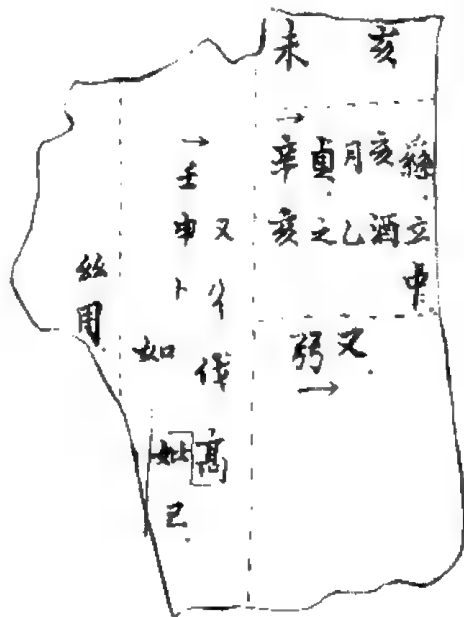 未 亥
→
辛亥
貞之
月乙
亥酒
立中
弜又
→
→
壬申卜
又彳伐
如
高
妣己
絲用